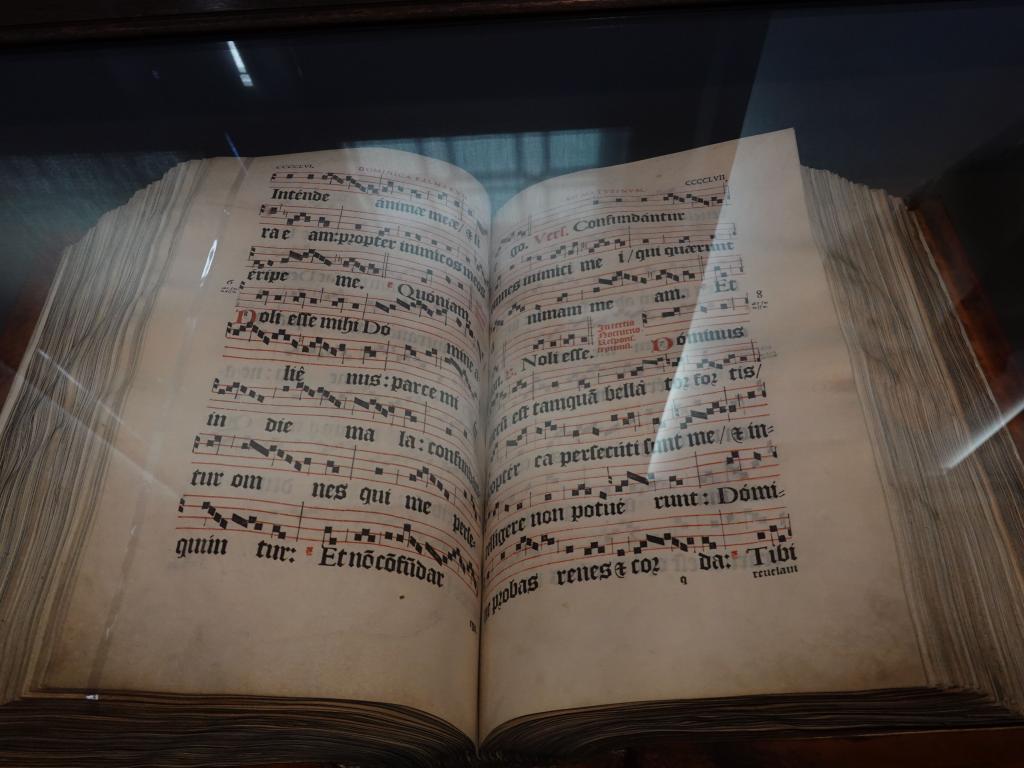 CCCCLVI.
DOMINICA
Inténde animæ meæ/ & li
ra e am:propter inimicos meos
éripe me. Quóniam
6
Noli esse mihi Do
mine a
lié nus: parce mi
in die ma la: confun
tur om nes qui me perse-
quún tur: Et nō cōfūdar
CCCCLVII
go. Vers. Confundántur
mnes inimici me i/ qui quærunt
nimam me am. Et
8
Noli esse.
In tertio
Nocturno
Respons.
septimū.
Dóminus
cū est tamquā bellā tor for tis/
proptér ea persecúti sunt me/ & in-
telligere non potué runt: Dómi-
probas renes & cor da: Tibi
q
reuelaui